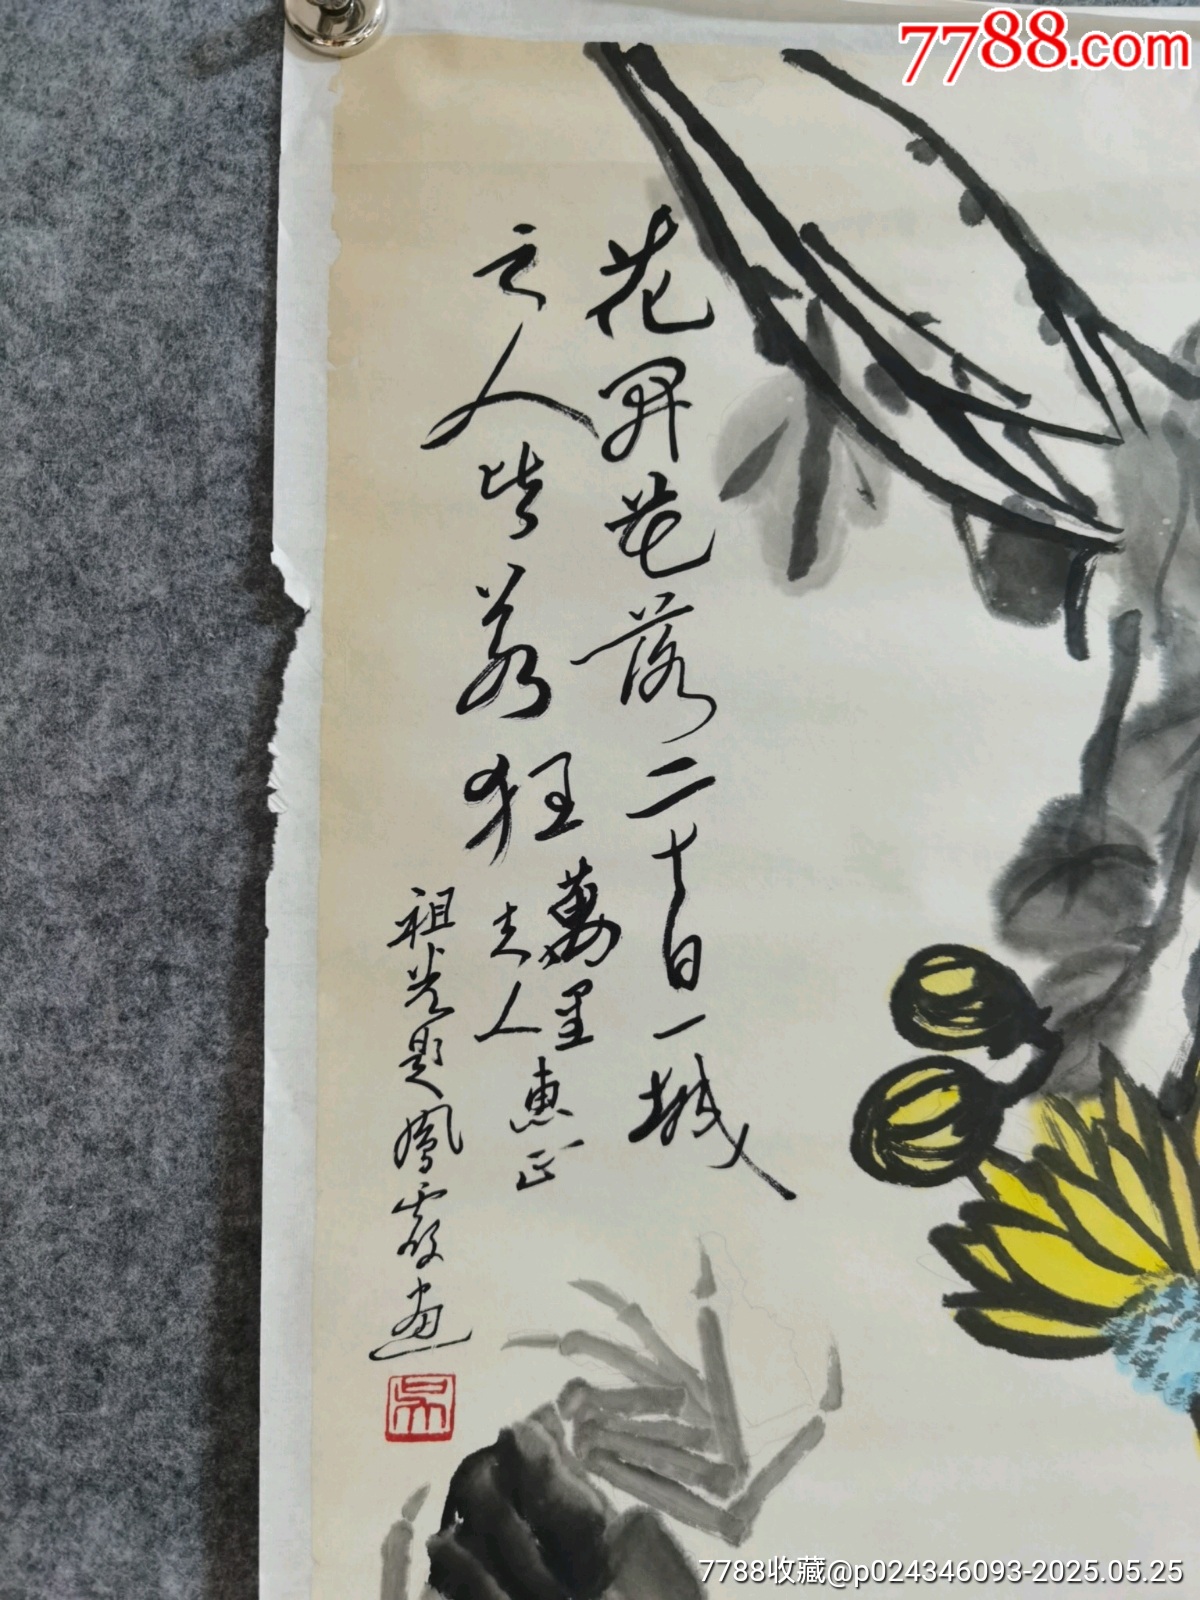 7788.com
花開花落二十日一城
之人皆若狂
萬里
夫人
惠正
祖光題鳳霞畫
吳
7788收藏@p024346093-2025.05.25